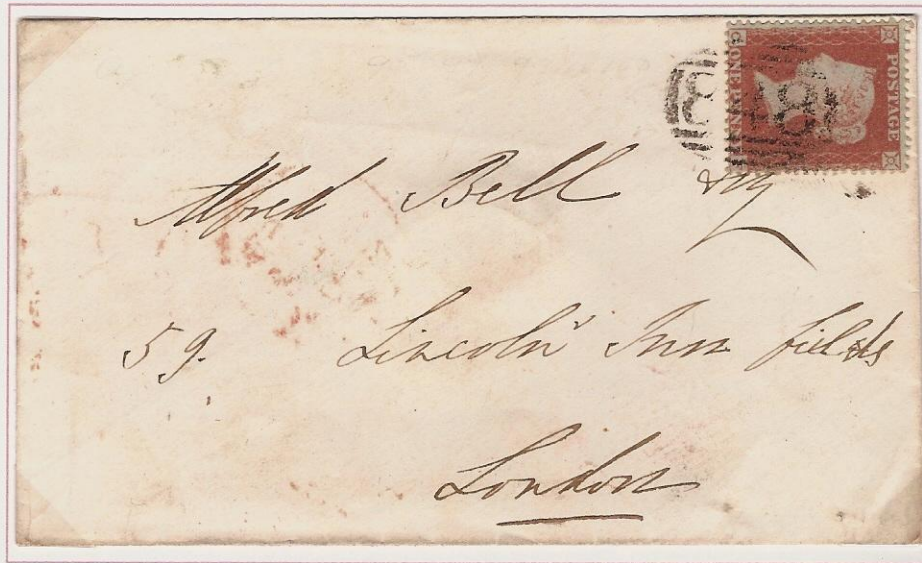 POSTAGE
ONE PENNY
Alfred Bell Esq
59. Lincoln' Inn fields
London